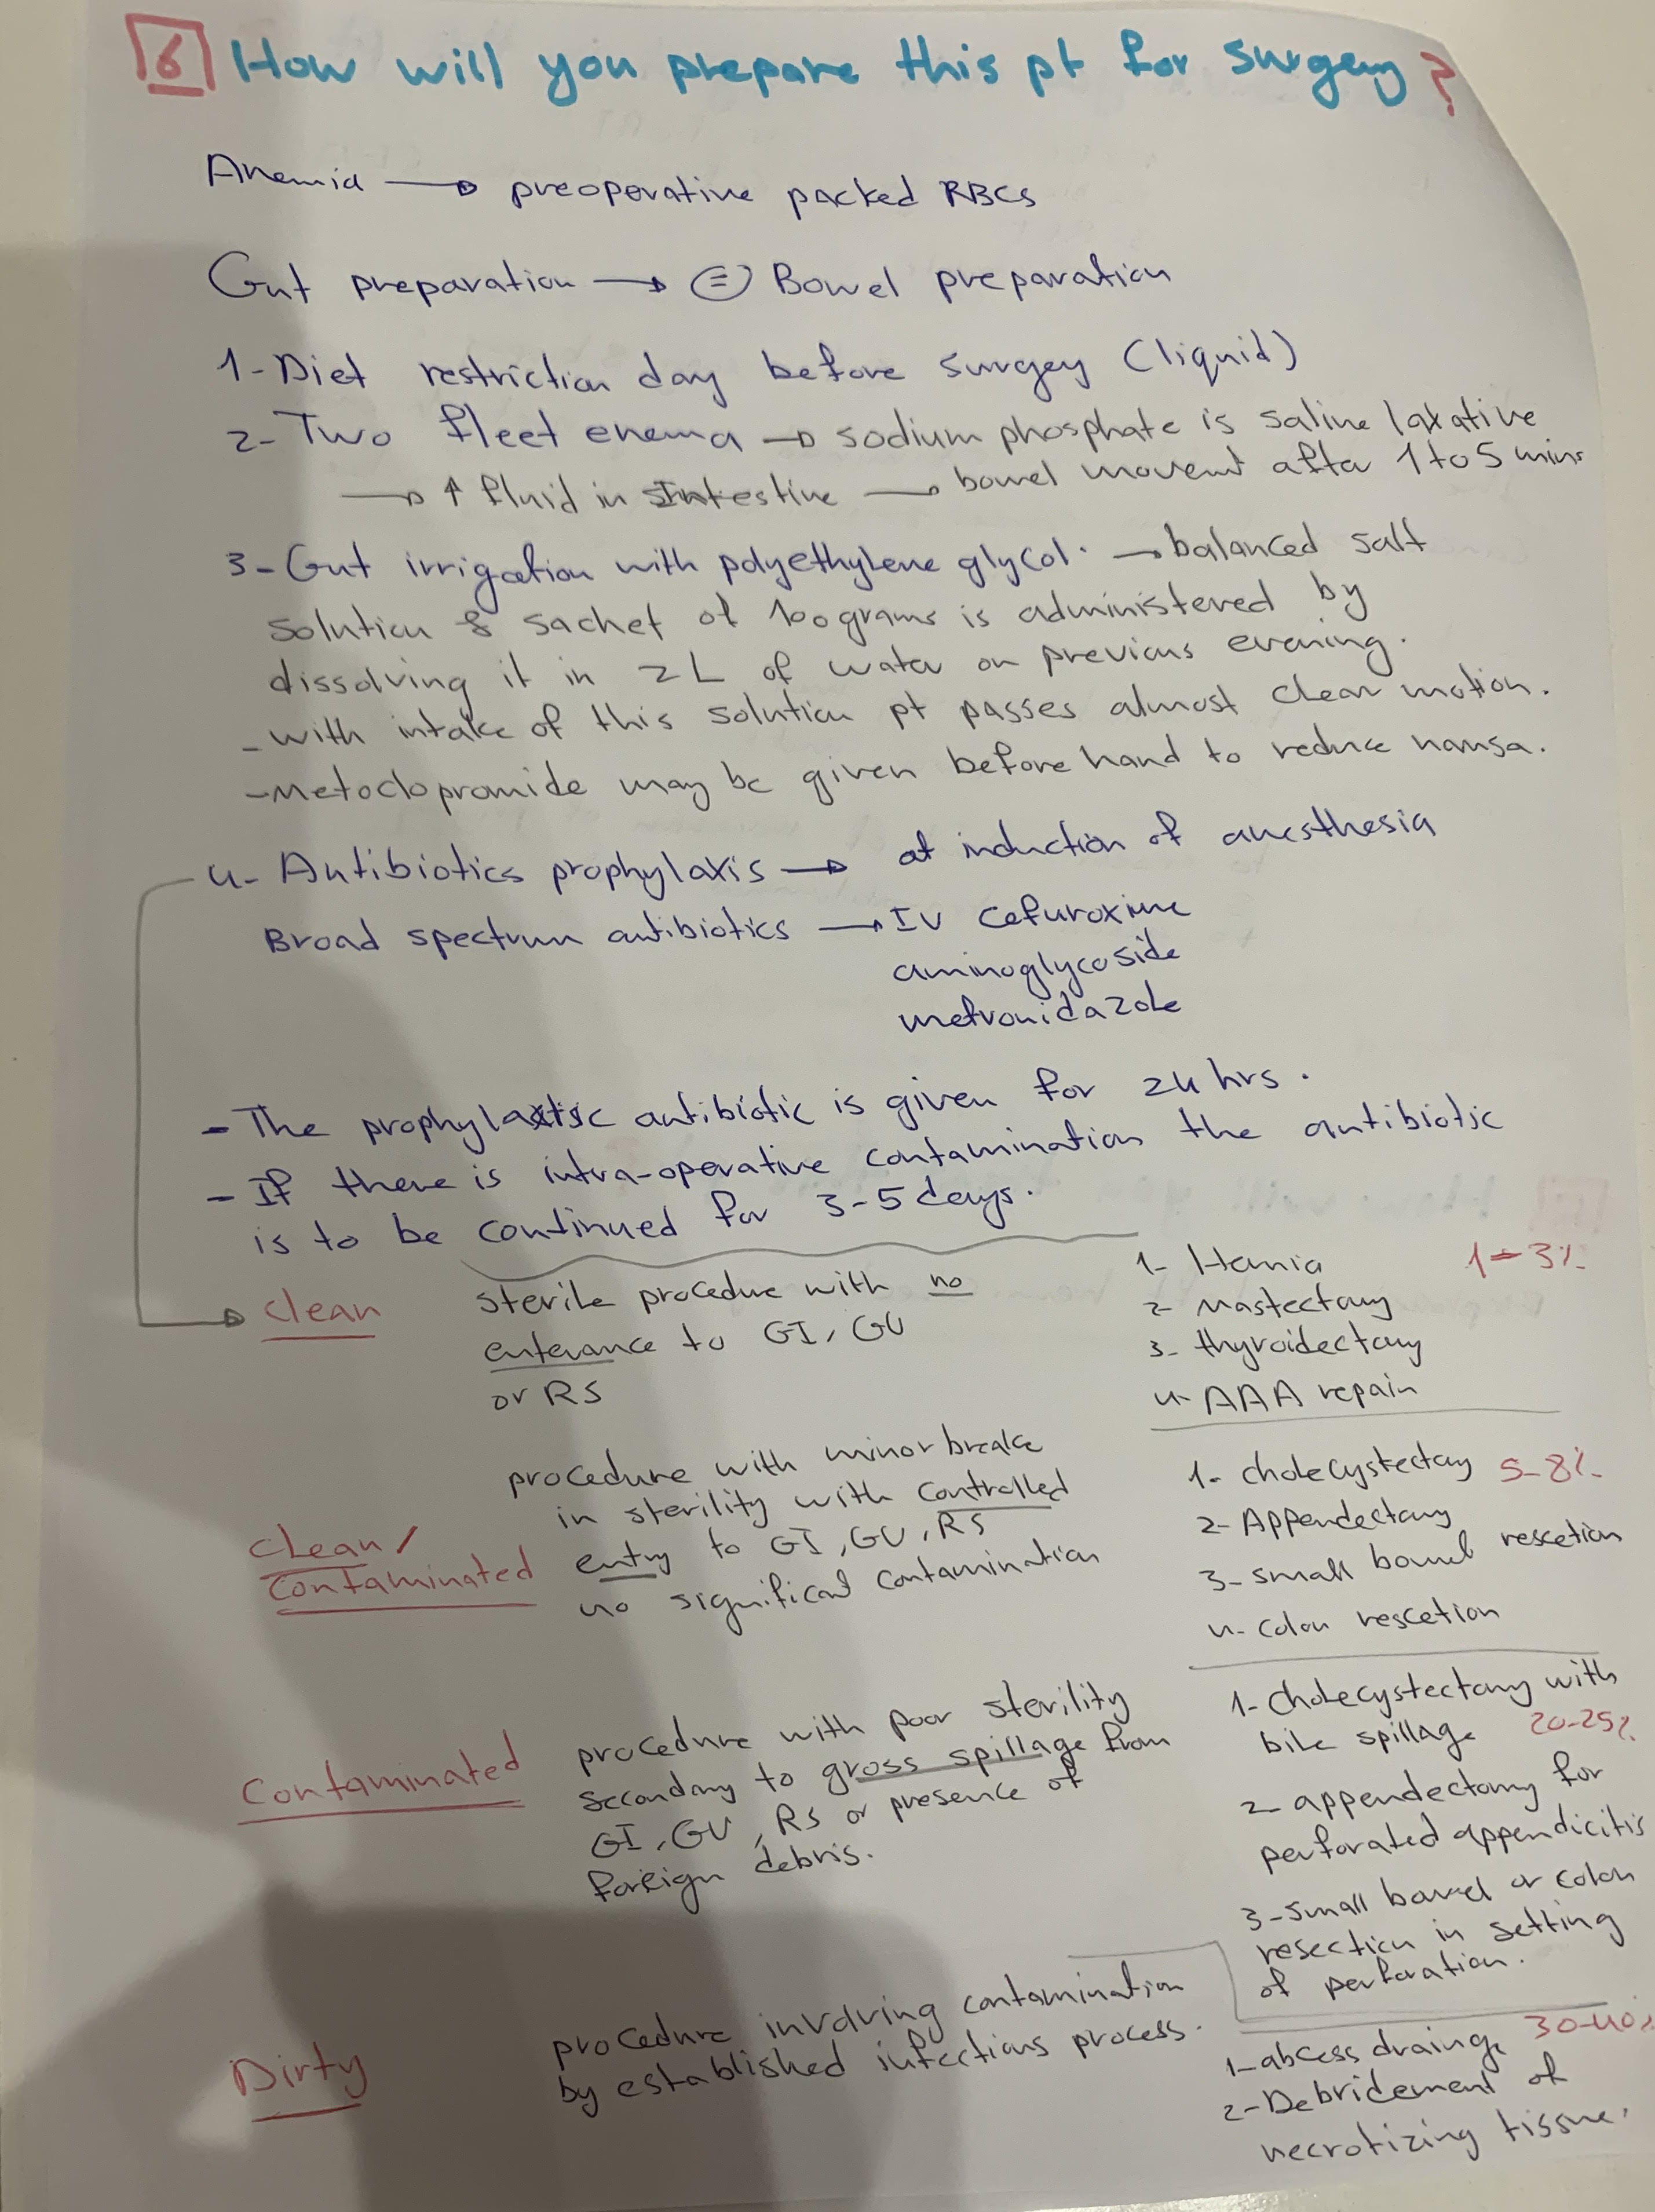 6 How will you prepare this pt for surgery?
Anemia → preoperative packed RBCs
Gut preparation → = Bowel preparation
1- Diet restriction day before surgey (liquid)
2- Two fleet enema → sodium phosphate is saline laxative
→ ↑ fluid in Intestine → bowel movemt after 1 to 5 mins
3- Gut irrigation with polyethylene glycol. → balanced salt
solution & sachet of 100 grams is administered by
dissolving it in 2L of water on previous evening.
- with intake of this solution pt passes almost clear motion.
- Metoclopromide may be given before hand to reduce nausa.
4- Antibiotics prophylaxis → at induction of anesthesia
Broad spectrum antibiotics → IV cefuroxime
aminoglycoside
metronidazole
- The prophylactic antibiotic is given for 24 hrs.
- If there is intra-operative contamination the antibiotic
is to be continued for 3-5 days.
clean
sterile procedure with no
enterance to GI, GU
or RS
1- Hernia 1-3%
2- Mastectomy
3- thyroidectomy
4- AAA repair
clean/
contaminated
procedure with minor breake
in sterility with controlled
entry to GI, GU, RS
no significant contamination
1- cholecystectomy 5-8%
2- Appendectomy
3- small bowel rescetion
4- colon rescetion
Contaminated
procedure with poor sterility
secondary to gross spillage from
GI, GU, RS or presence of
foreign debris.
1- cholecystectomy with
bile spillage 20-25%
2- appendectomy for
perforated appendicitis
3- small bowel or colon
resection in setting
of perforation.
Dirty
procedure involving contamination
by established infections process.
1- abcess drainge 30-40%
2- Debridement of
necrotizing tissue.